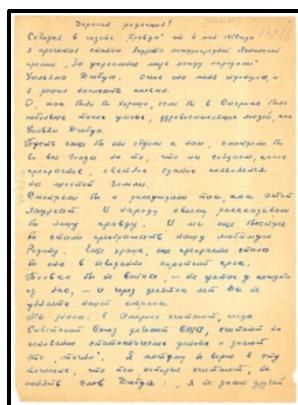 Дорогая редакция!
Сегодня в газете "Правда" от 6 мая 1959 года
я прочитал статью лауреата международной Ленинской
премии "За укрепление мира между народами"
Уильяма Дюбуа. Очень она меня
я решил написать письмо.
О, как было бы хорошо, если бы в Америке было
побольше таких умных, здравомыслящих людей, как
Уильям Дюбуа.
Пусть чаще бы они ездили к нам, смотрели бы
во все глаза на то, что мы создаем, какое
прекрасное, светлое здание появляется
на шестой Земли.
Смотрели бы и заключали так, как этот
лауреат. И народу своему рассказывали
бы нашу правду. И мы еще быстрее
бы стали преображать нашу любимую
Родину. Еще краше, еще прекраснее стала
бы она в короткий срок.
Только бы не война, – не у каждого
из нас, – и через десяток лет Вы не
узнаете нашей страны.
Мы знаем: в Америке считают, когда
Советский Союз догонит США, считают на
основании статистических данных и
это "точно". Я поэтому не верю в эту
точность, что те, которые считают, не
слов Дюбуа: "Я не знаю другой